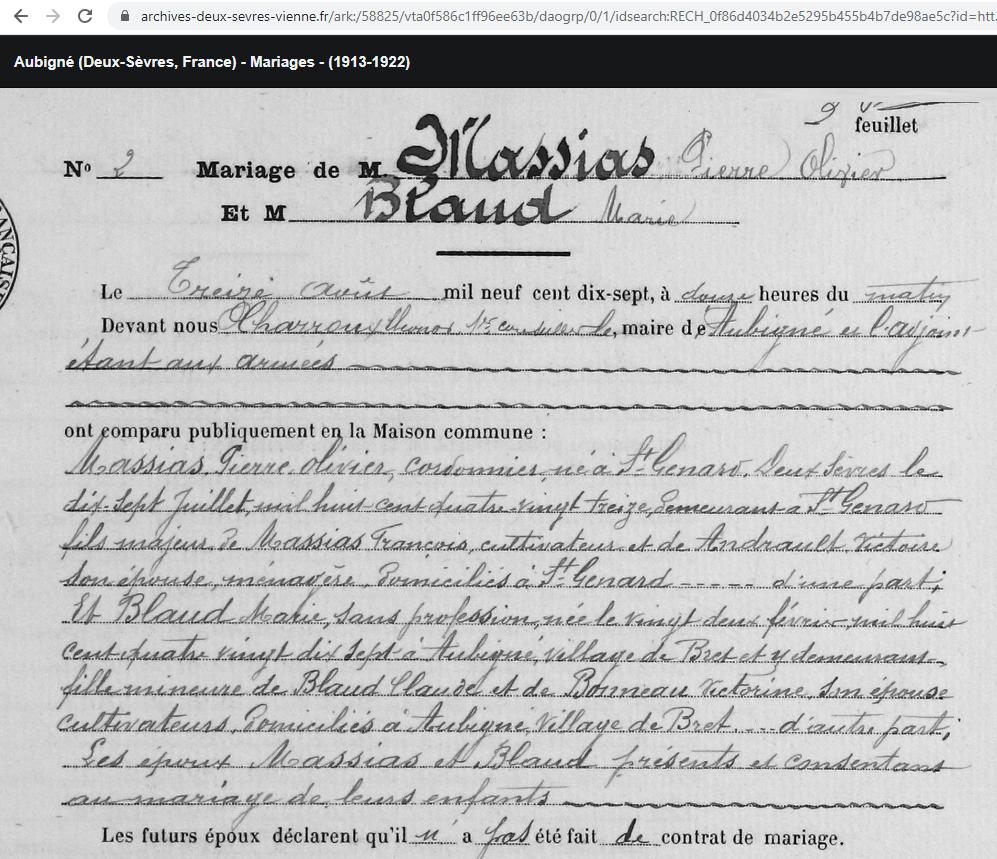 archives-deux-sevres-vienne.fr/ark:/58825/vta0f586c1ff96ee63b/daogrp/0/1/idsearch:RECH_0f86d4034b2e5295b455b4b7de98ae5c?id=htt
Aubigné (Deux-Sèvres, France) - Mariages - (1913-1922)
feuillet
No 2 Mariage de M. Massias Pierre Olivier
Et M Blaud Marie
Le Treize août mil neuf cent dix-sept, à douze heures du matin
Devant nous Charroux 1er conseiller le, maire de Aubigné et l'adjoint
étant aux armées
ont comparu publiquement en la Maison commune :
Massias, Pierre Olivier, cordonnier, né à St Genard Deux Sèvres le
dix-sept Juillet, mil huit-cent quatre-vingt treize, demeurant à St Genard
fils majeur de Massias François, cultivateur et de Andrault Victoire
son épouse, ménagère, domiciliés à St Genard ----- d'une part;
Et Blaud Marie, sans profession, née le vingt deux février, mil huit
cent quatre vingt dix sept à Aubigné, village de Bret et y demeurant
fille mineure de Blaud Claude et de Bonneau Victorine, son épouse
cultivateurs, domiciliés à Aubigné, Village de Bret.... d'autre part;
Les époux Massias et Blaud présents et consentant
au mariage de leurs enfants
Les futurs époux déclarent qu'il n' a pas été fait de contrat de mariage.